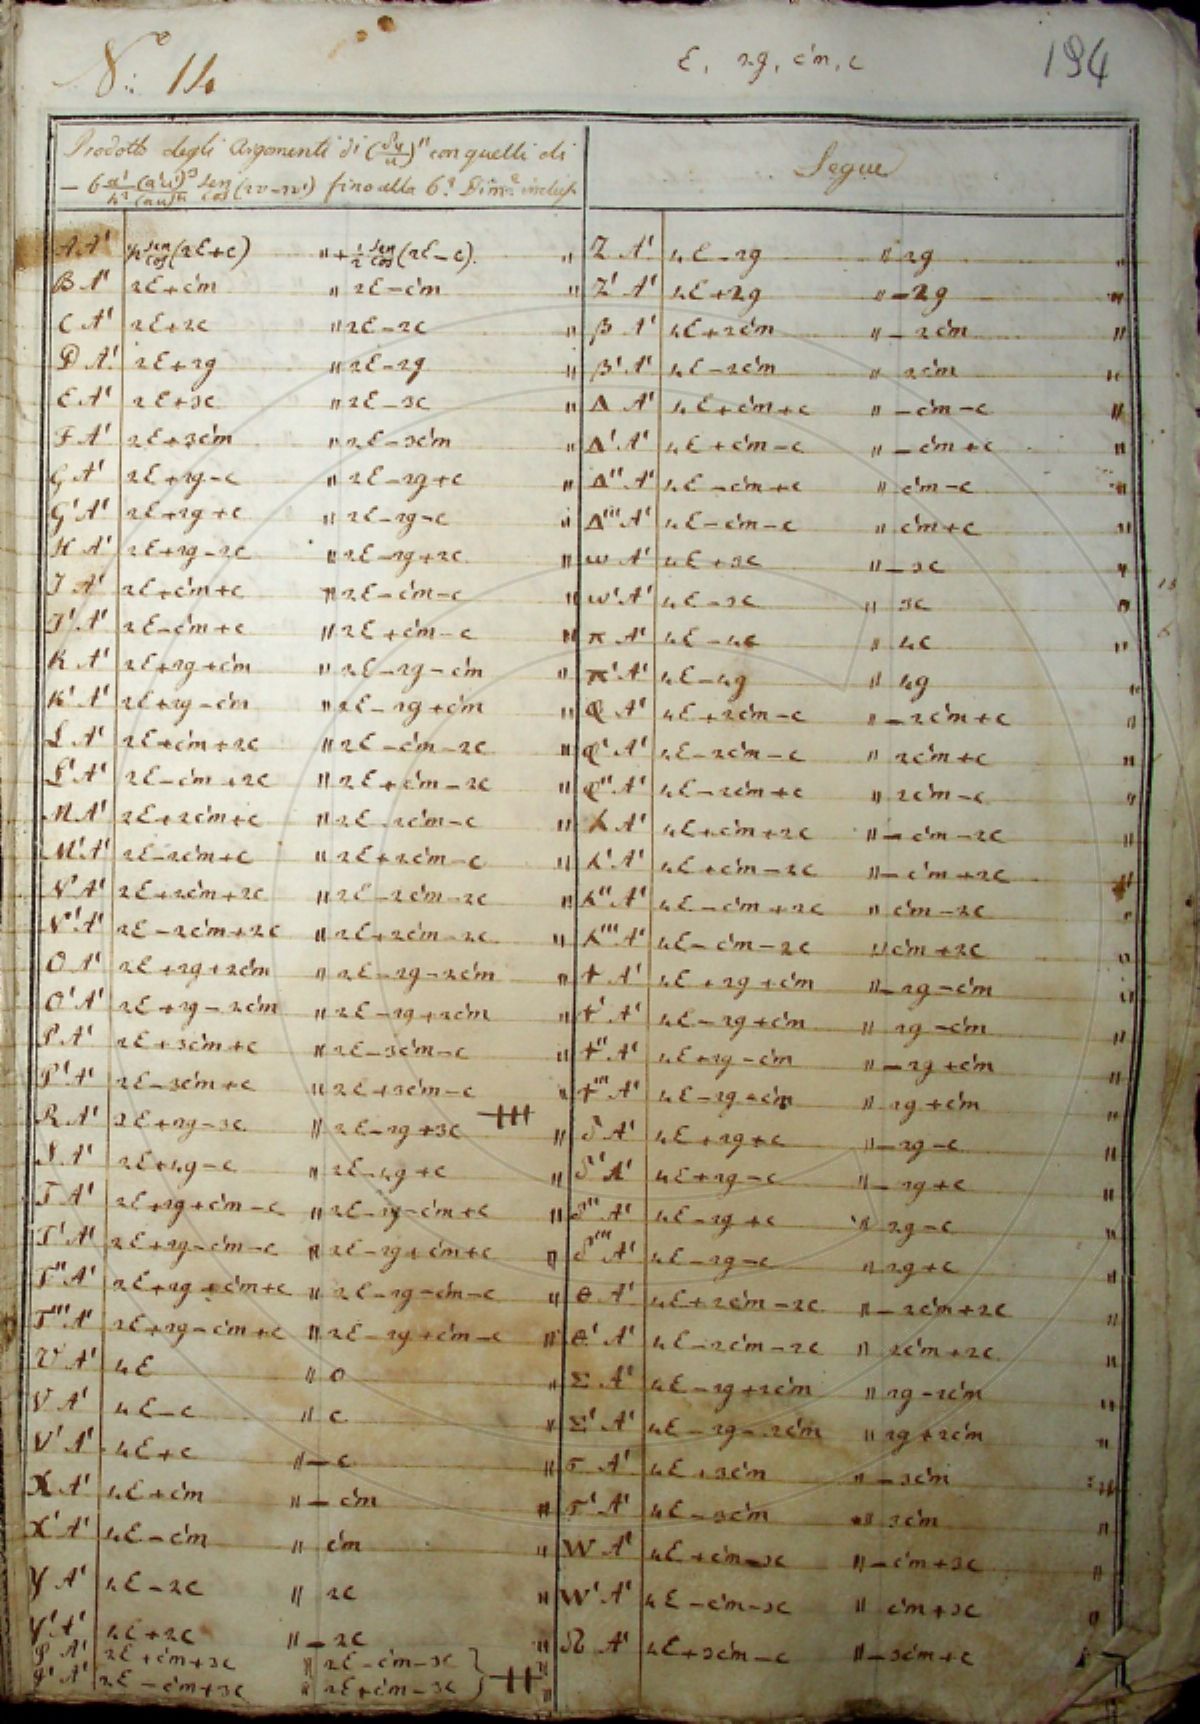 N.° 14
E, 2g, c'm, c
194
Prodotto degli Argomenti di (δu/u)'' con quelli di
− 6 a'/h² (a'u')³/(au)⁴ sen/cos (2v−2v') fino alla 6.ª Dim.e inclus.
A A' ½ sen/cos (2E+c) " + ½ sen/cos (2E−c). "
B A' 2E+c'm " 2E−c'm "
C A' 2E+2c " 2E−2c "
D A' 2E+2g " 2E−2g "
E A' 2E+3c " 2E−3c "
F A' 2E+3c'm " 2E−3c'm "
G A' 2E+2g−c " 2E−2g+c "
G' A' 2E+2g+c " 2E−2g−c "
H A' 2E+2g−2c " 2E−2g+2c "
I A' 2E+c'm+c " 2E−c'm−c "
I' A' 2E−c'm+c " 2E+c'm−c "
K A' 2E+2g+c'm " 2E−2g−c'm "
K' A' 2E+2g−c'm " 2E−2g+c'm "
L A' 2E+c'm+2c " 2E−c'm−2c "
L' A' 2E−c'm+2c " 2E+c'm−2c "
M A' 2E+2c'm+c " 2E−2c'm−c "
M' A' 2E−2c'm+c " 2E+2c'm−c "
N A' 2E+2c'm+2c " 2E−2c'm−2c "
N' A' 2E−2c'm+2c " 2E+2c'm−2c "
O A' 2E+2g+2c'm " 2E−2g−2c'm "
O' A' 2E+2g−2c'm " 2E−2g+2c'm "
P A' 2E+3c'm+c " 2E−3c'm−c "
P' A' 2E−3c'm+c " 2E+3c'm−c "
R A' 2E+2g−3c " 2E−2g+3c "
S A' 2E+4g−c " 2E−4g+c "
T A' 2E+2g+c'm−c " 2E−2g−c'm+c "
T' A' 2E+2g−c'm−c " 2E−2g+c'm+c "
T'' A' 2E+2g+c'm+c " 2E−2g−c'm−c "
T''' A' 2E+2g−c'm+c " 2E−2g+c'm−c "
U A' 4E " 0 "
V A' 4E−c " c "
V' A' 4E+c " −c "
X A' 4E+c'm " −c'm "
X' A' 4E−c'm " c'm "
Y A' 4E−2c " 2c "
Y' A' 4E+2c " −2c "
A' 2E+c'm+3c " 2E−c'm−3c "
A' 2E−c'm+3c " 2E+c'm−3c "
Segue
Z A' 4E−2g " 2g "
Z' A' 4E+2g " −2g "
β A' 4E+2c'm " −2c'm "
β' A' 4E−2c'm " 2c'm "
Δ A' 4E+c'm+c " −c'm−c "
Δ' A' 4E+c'm−c " −c'm+c "
Δ'' A' 4E−c'm+c " c'm−c "
Δ''' A' 4E−c'm−c " c'm+c "
ω A' 4E+3c " −3c "
ω' A' 4E−3c " 3c "
π A' 4E−4c " 4c "
π' A' 4E−4g " 4g "
Q A' 4E+2c'm−c " −2c'm+c "
Q' A' 4E−2c'm−c " 2c'm+c "
Q'' A' 4E−2c'm+c " 2c'm−c "
λ A' 4E+c'm+2c " −c'm−2c "
λ' A' 4E+c'm−2c " −c'm+2c "
λ'' A' 4E−c'm+2c " c'm−2c "
λ''' A' 4E−c'm−2c " c'm+2c "
t A' 4E+2g+c'm " −2g−c'm "
t' A' 4E−2g+c'm " 2g−c'm "
t'' A' 4E+2g−c'm " −2g+c'm "
t''' A' 4E−2g−c'm " 2g+c'm "
δ A' 4E+2g+c " −2g−c "
δ' A' 4E+2g−c " −2g+c "
δ'' A' 4E−2g+c " 2g−c "
δ''' A' 4E−2g−c " 2g+c "
θ A' 4E+2c'm−2c " −2c'm+2c "
θ' A' 4E−2c'm−2c " 2c'm+2c "
Σ A' 4E−2g+2c'm " 2g−2c'm "
Σ' A' 4E−2g−2c'm " 2g+2c'm "
σ A' 4E+3c'm " −3c'm "
σ' A' 4E−3c'm " 3c'm "
W A' 4E+c'm−3c " −c'm+3c "
W' A' 4E−c'm−3c " c'm+3c "
Ω A' 4E+3c'm−c " −3c'm+c "